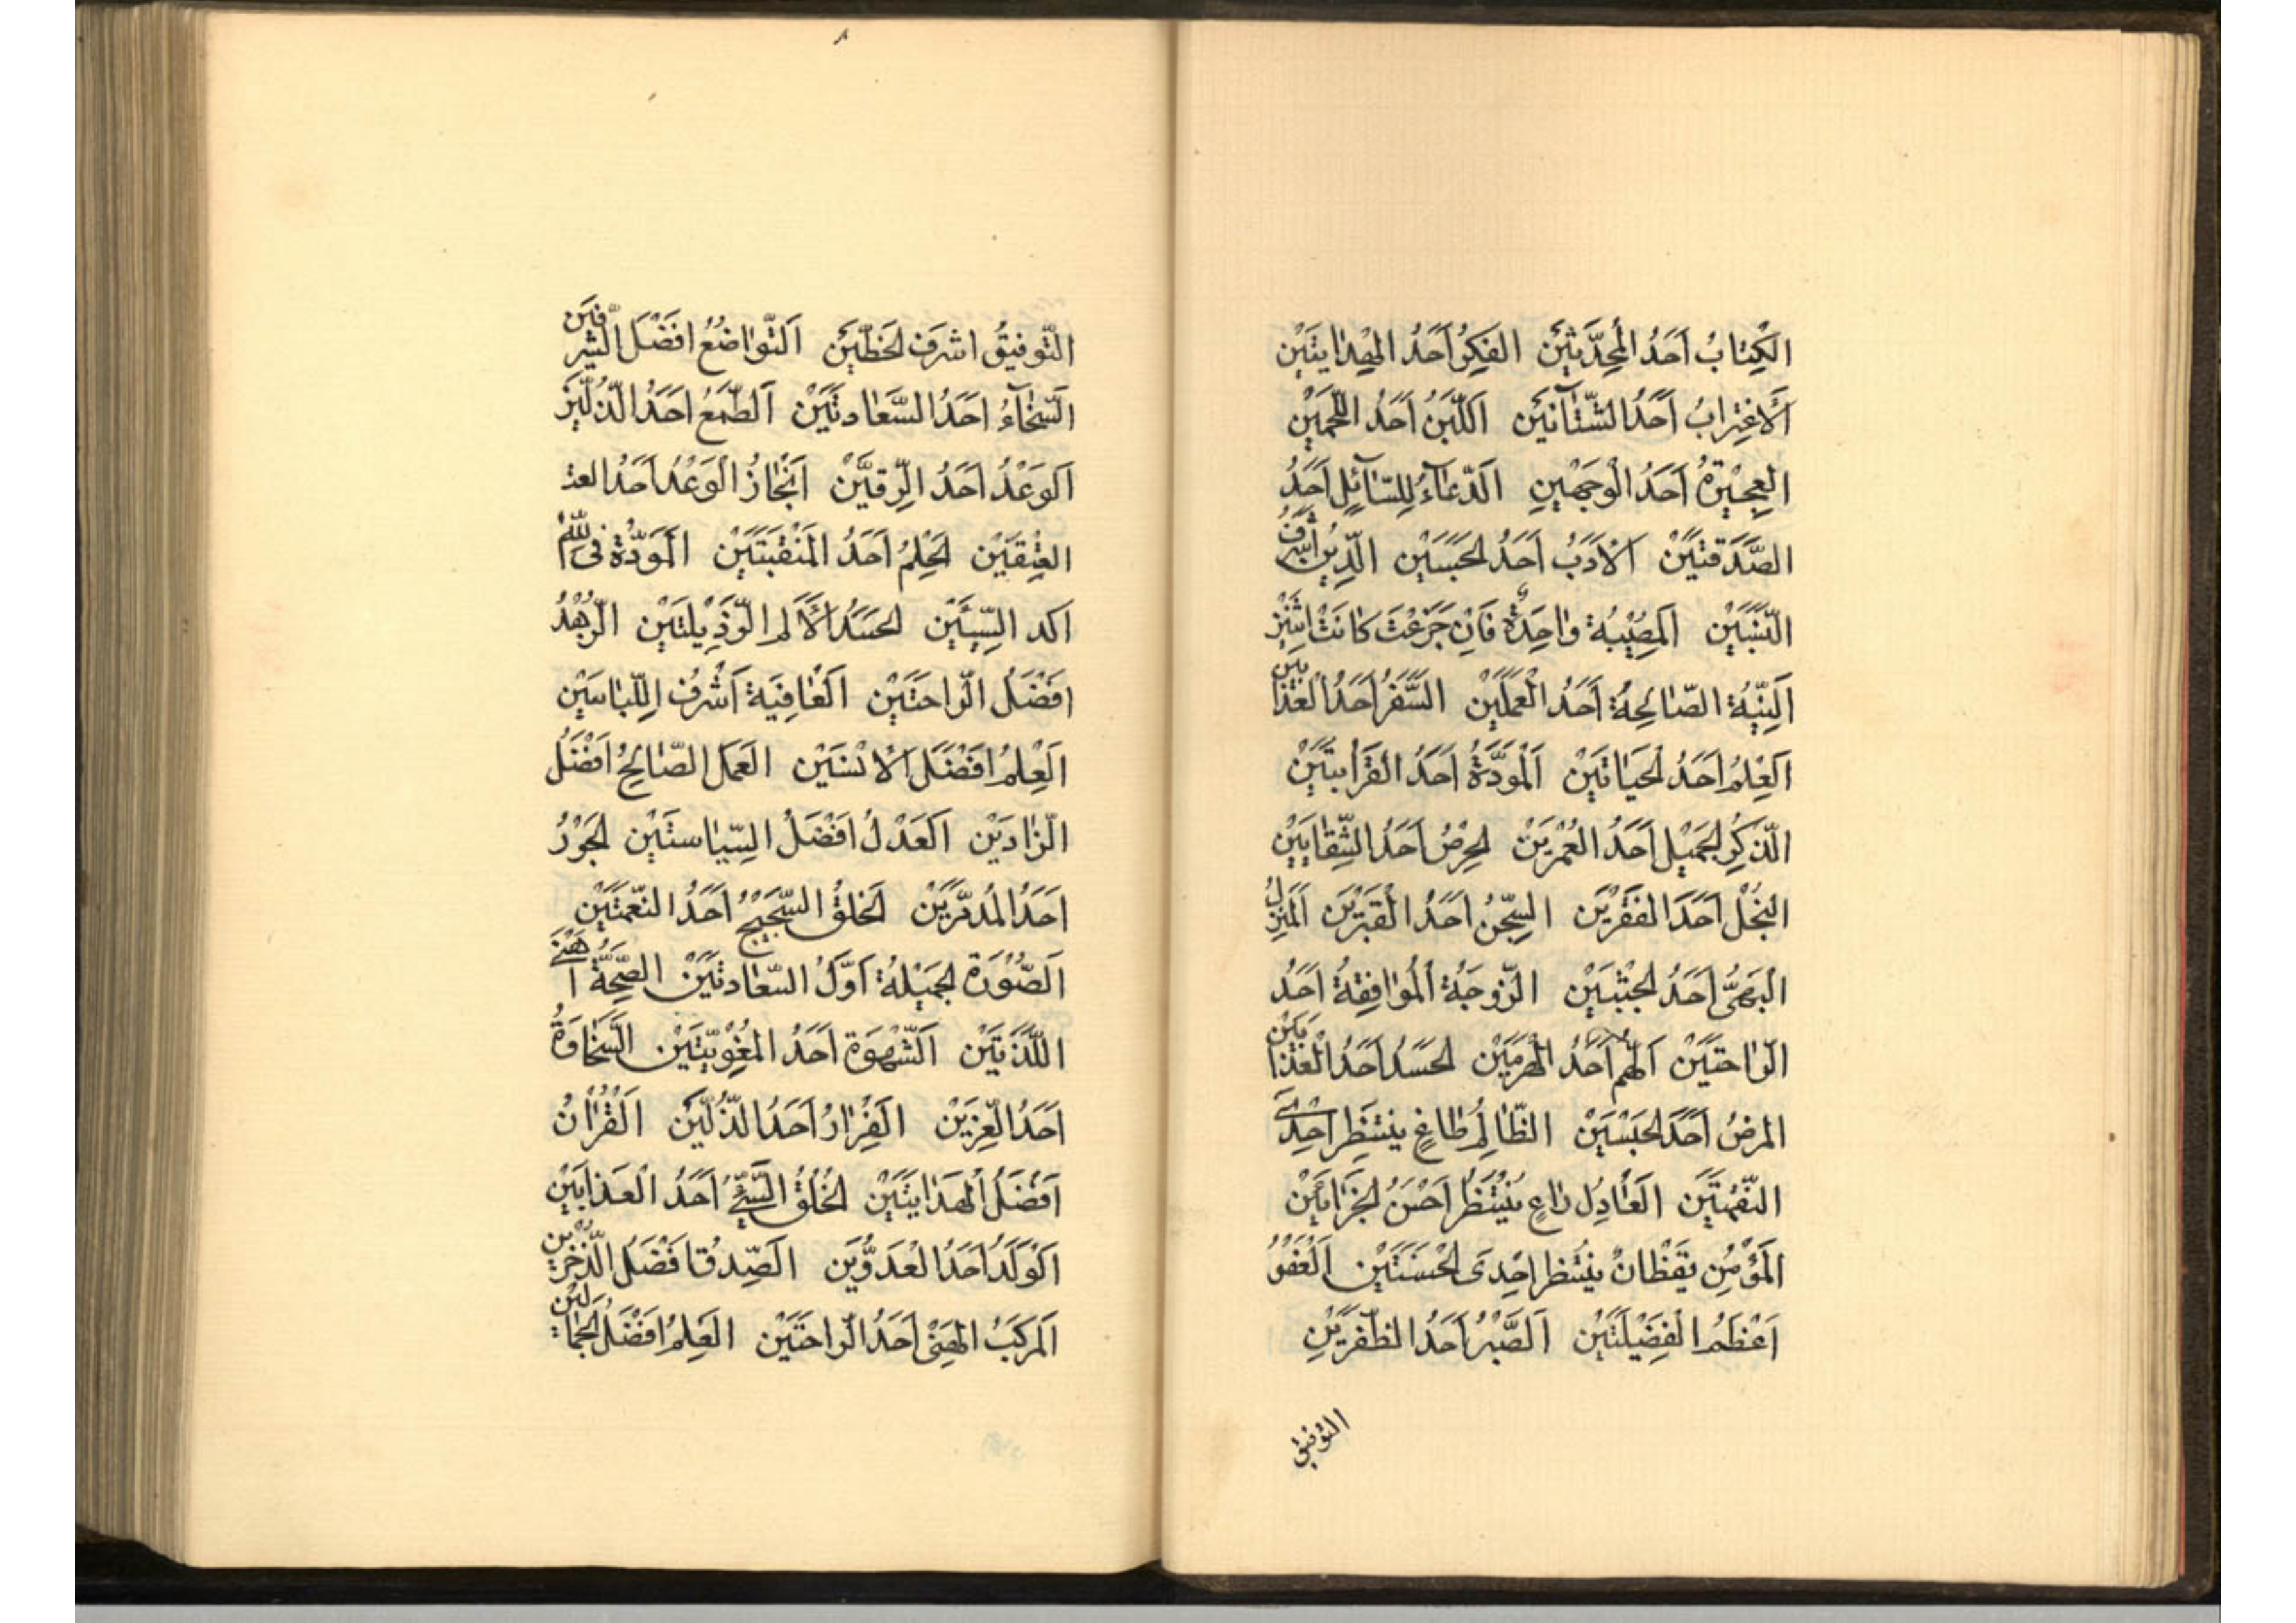 الكِتابُ اَحَدُ المُحَدِّثَيْنَ الفِكرُ اَحَدُ الهِدايَتَيْنِ
اَلاغتِرابُ اَحَدُ الشَّتاتَيْنِ اَللَّبَنُ اَحَدُ اللَّحْمَيْنِ
اَحَدُ الْوَجْهَيْنِ اَلدُّعاءُ لِلسّائِلِ اَحَدُ
الصَّدَقَتَيْنِ اَلْاَدَبُ اَحَدُ الحَسَبَيْنِ الدّينُ اَشرَفُ
النَّسَبَيْنِ اَلمُصيبَةُ واحِدَةٌ فَاِن جَزِعْتَ كانَتْ اثنَتَيْنِ
اَلنِّيَّةُ الصّالِحَةُ اَحَدُ الْعَمَلَيْنِ السَّفَرُ اَحَدُ العَذابَيْنِ
اَلعِلمُ اَحَدُ الحَياتَيْنِ اَلْمَوَدَّةُ اَحَدُ القَرابَتَيْنِ
الذِّكرُ الجَميلُ اَحَدُ العُمْرَيْنِ الحِرْصُ اَحَدُ الشِّقايَيْنِ
البُخْلُ اَحَدَ الفَقْرَيْنِ السِّجْنُ اَحَدُ الْقَبْرَيْنِ اَلمَنزِلُ
البَهِىُّ اَحَدُ الجَنَّتَيْنِ الزَّوجَةُ اَلمُوافِقَةُ اَحَدُ
الرّاحَتَيْنِ اَلهَمُّ اَحَدُ الهَرَمَيْنِ الحَسَدُ اَحَدُ الْعَذابَيْنِ
المَرضُ اَحَدُ الحَبْسَيْنِ الظّالِمُ طاغٍ يَنتَظِر اِحْدَى
النَّقِمَتَيْنِ العادِلُ راعٍ يَنْتَظِرُ اَحْسَنُ الجَزاءَيْنِ
المُؤْمِنُ يَقْظانُ يَنْتَظِرُ اِحْدَى الحَسَنَتَيْنِ اَلعَفْوُ
اَعْظَمُ الْفَضيلَتَيْنِ اَلصَّبْرُ اَحَدُ الظَّفَرَيْنِ
التوفيق
التَّوفيقُ اشرَف الحَظَّيْنِ اَلتَّواضُعُ افَضَلَ الشَّرَفَيْنِ
السَّخآءُ احَدُ السَّعادتَيْنِ اَلطَّمَعُ احَدُ الذُّلَّيْنِ
اَلوَعْدُ اَحَدُ الرِّقَّيْنِ اَنْجازُ الْوَعْدِ اَحَدُ العتـ
العِتْقَيْنِ الحِلمُ اَحَدُ المَنْقَبَتَيْنِ اَلمَوَدَّةُ فى اللّٰه
اكد السَّبَبَيْنِ الحَسَدُ اَلْاَم الرَّذيلَتَيْنِ الزُّهْدُ
افَضَلُ الرّاحَتَيْنِ اَلعافِيَةُ اَشْرَفُ اللِّباسَيْنِ
اَلعِلمُ افَضَلُ الْاُنْسَيْنِ العَمَل الصّالِحُ اَفْضَلُ
الزّادَيْنِ اَلعَدْلُ اَفْضَلُ السِّياستَيْنِ الجَوْرُ
اَحَدُ المُدمِّرَيْنِ اَلخلقُ السَّجيحُ اَحَدُ النِّعمَتَيْنِ
اَلصُّوْرَة الجَميْلَةُ اَوَّلُ السَّعادتَيْنِ الصِّحَّةُ اَهْنَى
اللَّذَّتَيْنِ اَلشَّهْوَة اَحَدُ المُغْوِيَتَيْنِ اَلسَّخاوَةُ
اَحَدُ العِزَّيْنِ اَلفِرارُ اَحَدُ الذُّلَّيْنِ اَلْقُرْانُ
اَفْضَلُ الْهِدايَتَيْنِ الخُلُقُ السَّيّئُ اَحَدُ الْعَذابَيْنِ
اَلْوَلَدُ اَحَدُ العَدُوَّيْنِ اَلصِّدقُ افَضَلُ الذُّخْرَيْنِ
اَلمَركَبُ الهَنِىْ اَحَدُ الرّاحَتَيْنِ العِلمُ افَضَلُ الجَمالَيْنِ